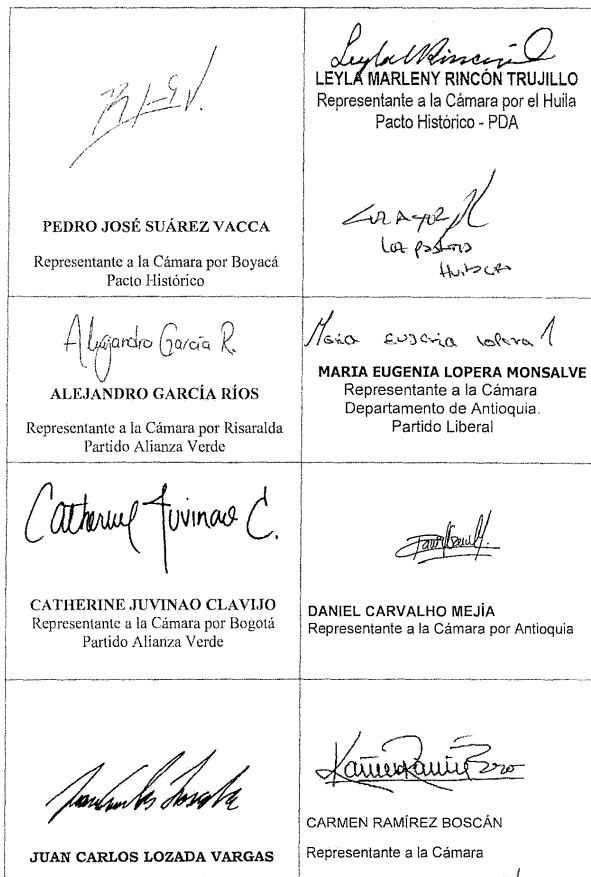 PEDRO JOSÉ SUÁREZ VACCA
Representante a la Cámara por Boyacá
Pacto Histórico
LEYLA MARLENY RINCÓN TRUJILLO
Representante a la Cámara por el Huila
Pacto Histórico - PDA
Alejandro García R.
ALEJANDRO GARCÍA RÍOS
Representante a la Cámara por Risaralda
Partido Alianza Verde
Maria Eugenia Lopera
MARIA EUGENIA LOPERA MONSALVE
Representante a la Cámara
Departamento de Antioquia.
Partido Liberal
Catherine Juvinao C.
CATHERINE JUVINAO CLAVIJO
Representante a la Cámara por Bogotá
Partido Alianza Verde
DANIEL CARVALHO MEJÍA
Representante a la Cámara por Antioquia
JUAN CARLOS LOZADA VARGAS
CARMEN RAMÍREZ BOSCÁN
Representante a la Cámara